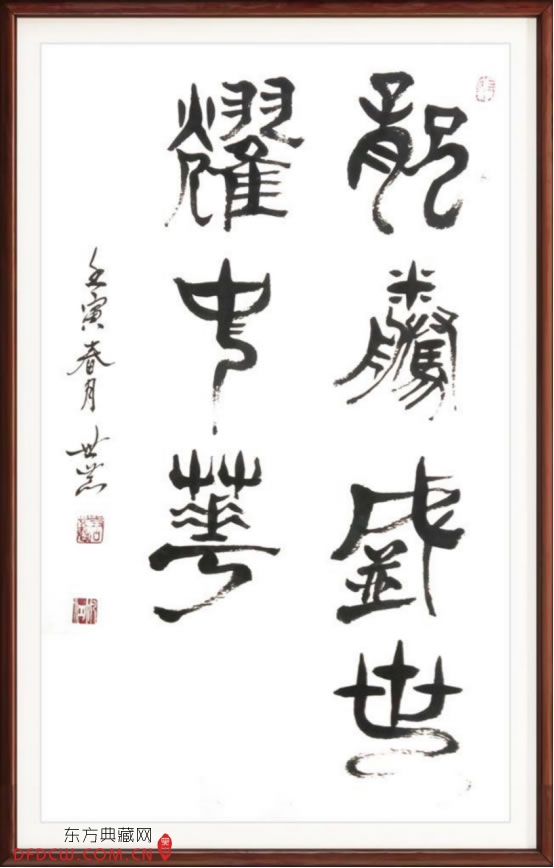 龍騰盛世
耀中華
壬寅春月 世崇
东方典藏网
DFDCW.COM.CN